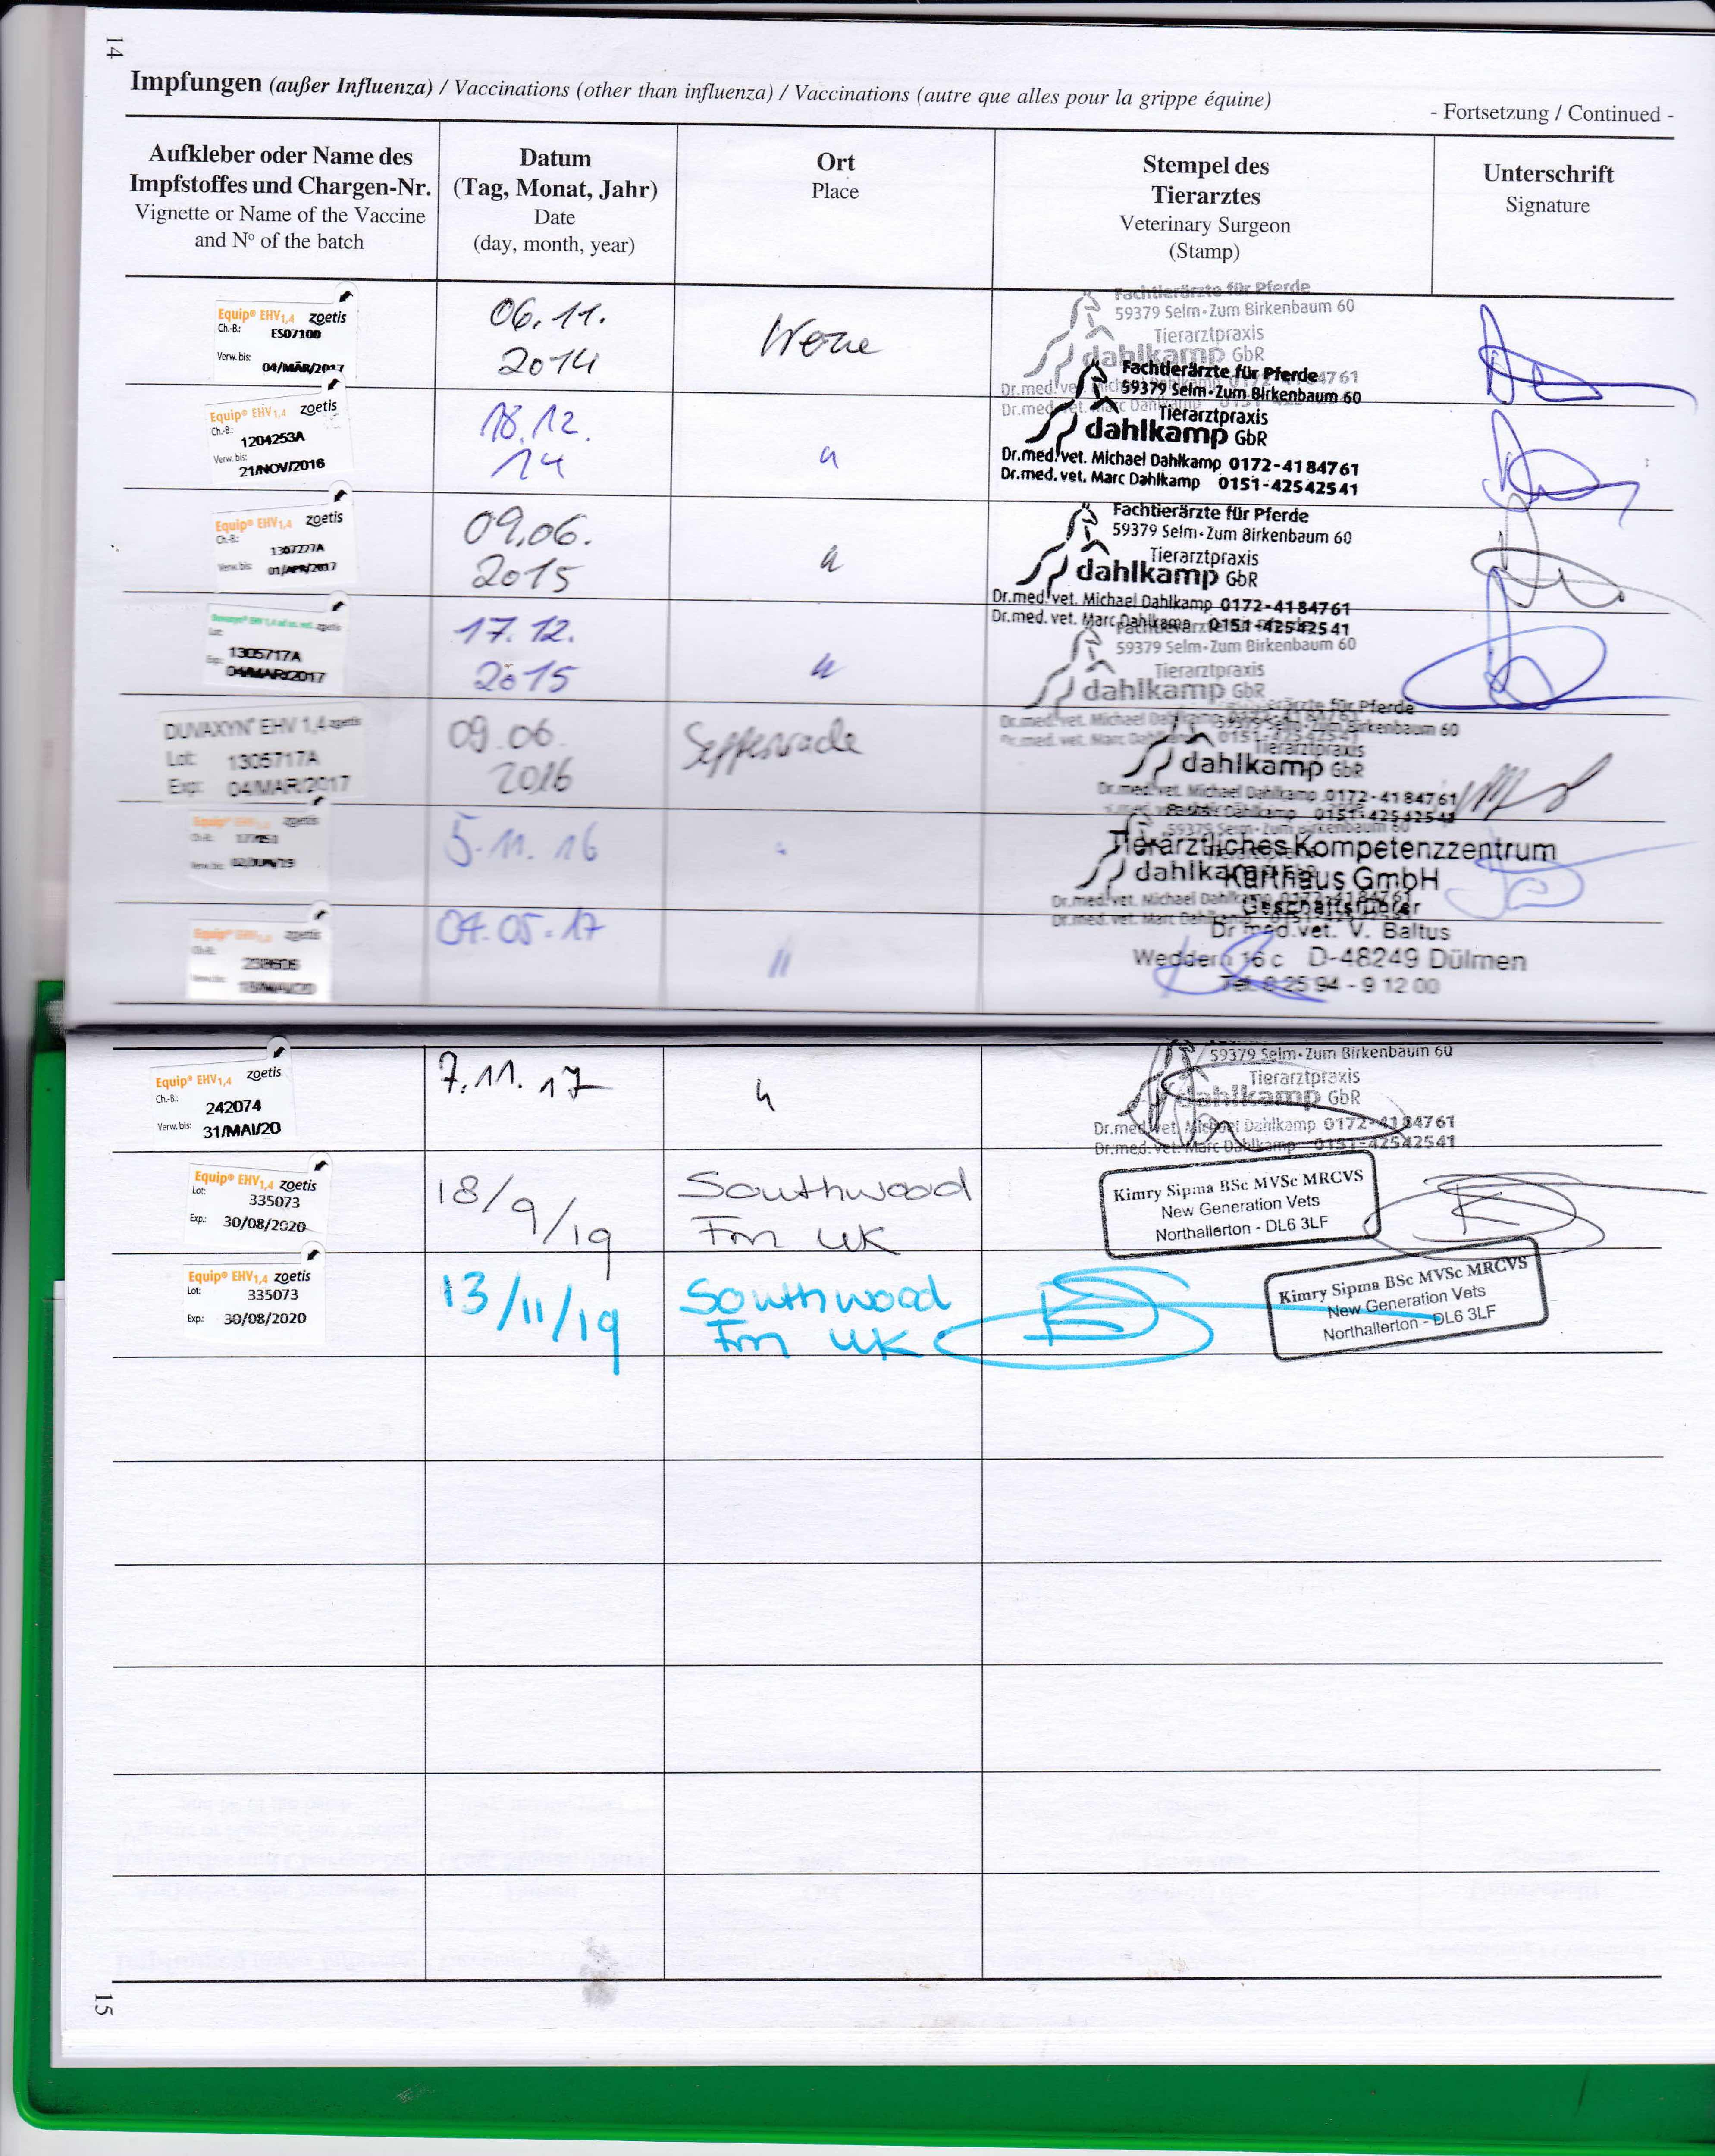 14
Impfungen (außer Influenza) / Vaccinations (other than influenza) / Vaccinations (autre que alles pour la grippe équine)
- Fortsetzung / Continued -
Aufkleber oder Name des
Impfstoffes und Chargen-Nr.
Vignette or Name of the Vaccine
and Nº of the batch
Datum
(Tag, Monat, Jahr)
Date
(day, month, year)
Ort
Place
Stempel des
Tierarztes
Veterinary Surgeon
(Stamp)
Unterschrift
Signature
Equip® EHV1,4 zoetis
Ch.-B.: ES07100
Verw. bis: 04/MÄR/2017
06.11.
2014
Fachtierärzte für Pferde
59379 Selm-Zum Birkenbaum 60
Tierarztpraxis
dahlkamp GbR
Equip® EHV1,4 zoetis
Ch.-B.: 1204253A
Verw. bis: 21/NOV/2016
18.12.
14
Fachtierärzte für Pferde
59379 Selm-Zum Birkenbaum 60
Tierarztpraxis
dahlkamp GbR
Dr.med.vet. Michael Dahlkamp 0172-4184761
Dr.med.vet. Marc Dahlkamp 0151-42542541
Equip® EHV1,4 zoetis
Ch.-B.: 1307227A
Verw. bis: 01/APR/2017
09.06.
2015
Fachtierärzte für Pferde
59379 Selm-Zum Birkenbaum 60
Tierarztpraxis
dahlkamp GbR
Dr.med.vet. Michael Dahlkamp 0172-4184761
Dr.med.vet. Marc Dahlkamp 0151-42542541
zoetis
Lot: 1305717A
Exp: 04/MAR/2017
17.12.
2015
59379 Selm-Zum Birkenbaum 60
Tierarztpraxis
dahlkamp GbR
DUVAXYN® EHV 1,4 zoetis
Lot: 1305717A
Exp: 04/MAR/2017
09.06.
2016
Seppenrade
Tierarztpraxis
dahlkamp GbR
Dr.med.vet. Michael Dahlkamp 0172-4184761
Equip® EHV1,4 zoetis
Verw. bis: 02/JUN/19
5.11.16
Tierärztliches Kompetenzzentrum
Karthaus GmbH
Geschäftsführer
Dr med.vet. V. Baltus
Weddern 16 c D-48249 Dülmen
Tel. 0 25 94 - 9 12 00
Equip® EHV1,4 zoetis
238606
18/MAI/20
04.05.17
"
Equip® EHV1,4 zoetis
Ch.-B.: 242074
Verw. bis: 31/MAI/20
7.11.17
59379 Selm-Zum Birkenbaum 60
Tierarztpraxis
dahlkamp GbR
Dr.med.vet. Michael Dahlkamp 0172-4184761
Dr.med.vet. Marc Dahlkamp 0151-42542541
Equip® EHV1,4 zoetis
Lot: 335073
Exp.: 30/08/2020
18/9/19
Southwood
Fm UK
Kimry Sipma BSc MVSc MRCVS
New Generation Vets
Northallerton - DL6 3LF
Equip® EHV1,4 zoetis
Lot: 335073
Exp.: 30/08/2020
13/11/19
Southwood
Fm UK
Kimry Sipma BSc MVSc MRCVS
New Generation Vets
Northallerton - DL6 3LF
15